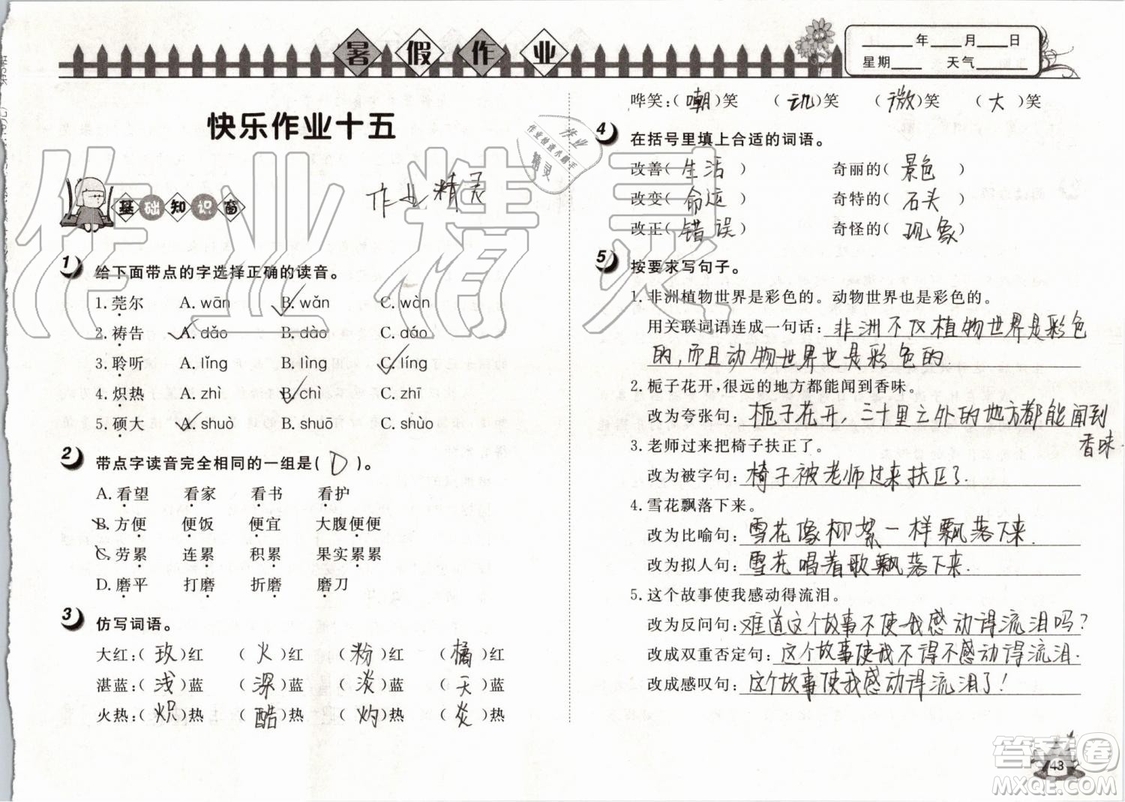 暑假作业
____年____月____日
星期____ 天气____
快乐作业十五
作业精灵
作业精灵
基础知识窗
1 给下面带点的字选择正确的读音。
1.莞尔 A.wān B.wǎn C.wàn
2.祷告 A.dǎo B.dào C.dáo
3.聆听 A.lǐng B.lìng C.líng
4.炽热 A.zhì B.chì C.zhī
5.硕大 A.shuò B.shuō C.shùo
2 带点字读音完全相同的一组是( D )。
A.看望 看家 看书 看护
B.方便 便饭 便宜 大腹便便
C.劳累 连累 积累 果实累累
D.磨平 打磨 折磨 磨刀
3 仿写词语。
大红:(玫)红 (火)红 (粉)红 (橘)红
湛蓝:(浅)蓝 (深)蓝 (淡)蓝 (天)蓝
火热:(炽)热 (酷)热 (灼)热 (炎)热
哗笑:(嘲)笑 (讥)笑 (微)笑 (大)笑
4 在括号里填上合适的词语。
改善(生活) 奇丽的(景色)
改变(命运) 奇特的(石头)
改正(错误) 奇怪的(现象)
5 按要求写句子。
1.非洲植物世界是彩色的。动物世界也是彩色的。
用关联词语连成一句话:非洲不仅植物世界是彩色
的,而且动物世界也是彩色的.
2.栀子花开,很远的地方都能闻到香味。
改为夸张句:栀子花开,三十里之外的地方都能闻到
香味.
3.老师过来把椅子扶正了。
改为被字句:椅子被老师过来扶正了.
4.雪花飘落下来。
改为比喻句:雪花像柳絮一样飘落下来.
改为拟人句:雪花唱着歌飘落下来.
5.这个故事使我感动得流泪。
改为反问句:难道这个故事不使我感动得流泪吗?
改成双重否定句:这个故事使我不得不感动得流泪.
改成感叹句:这个故事使我感动得流泪了!
43
答案圈
MXQE.COM